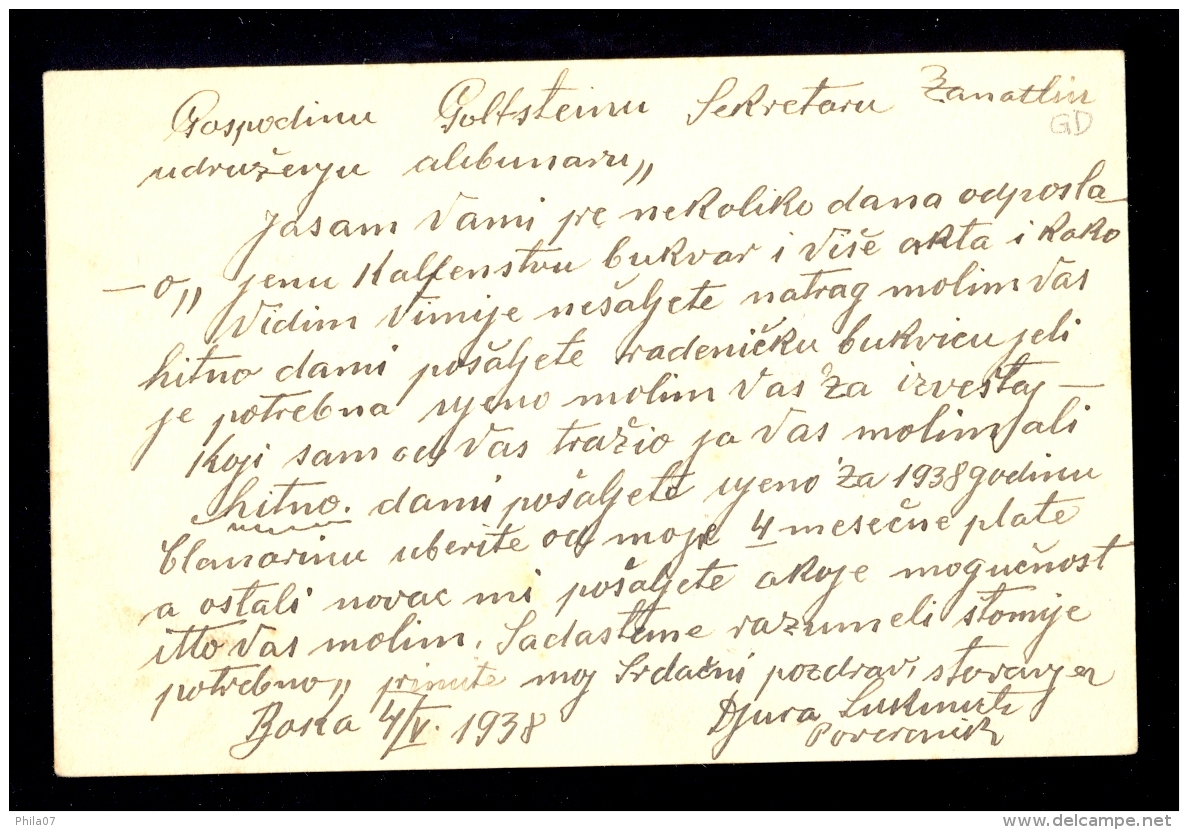 Gospodinu Goltsteinu Sekretaru Zanatlin
GD
udruženju alibunaru„
Jasam Vami pre nekoliko dana odposla
— o„ jenu Kalfenstvu bukvar i više akta i kako
Vidim Vimije nešaljete natrag molim Vas
hitno dami pošaljete radeničku bukvicu jeli
je potrebna njeno molim Vas za izveštaj —
Koji sam od Vas tražio ja Vas molim ali
hitno. dami pošaljete njeno za 1938 godinu
Članarinu uberite od moje 4 mesečne plate
a ostali novac mi pošaljete akoje mogučnost
itto Vas molim. Sadasteme razumeli štomije
potrebno„ primite moj Srdačni pozdrav,
Boka 4/V. 1938 Djura
Poverenik
Phila07
delcampe.net